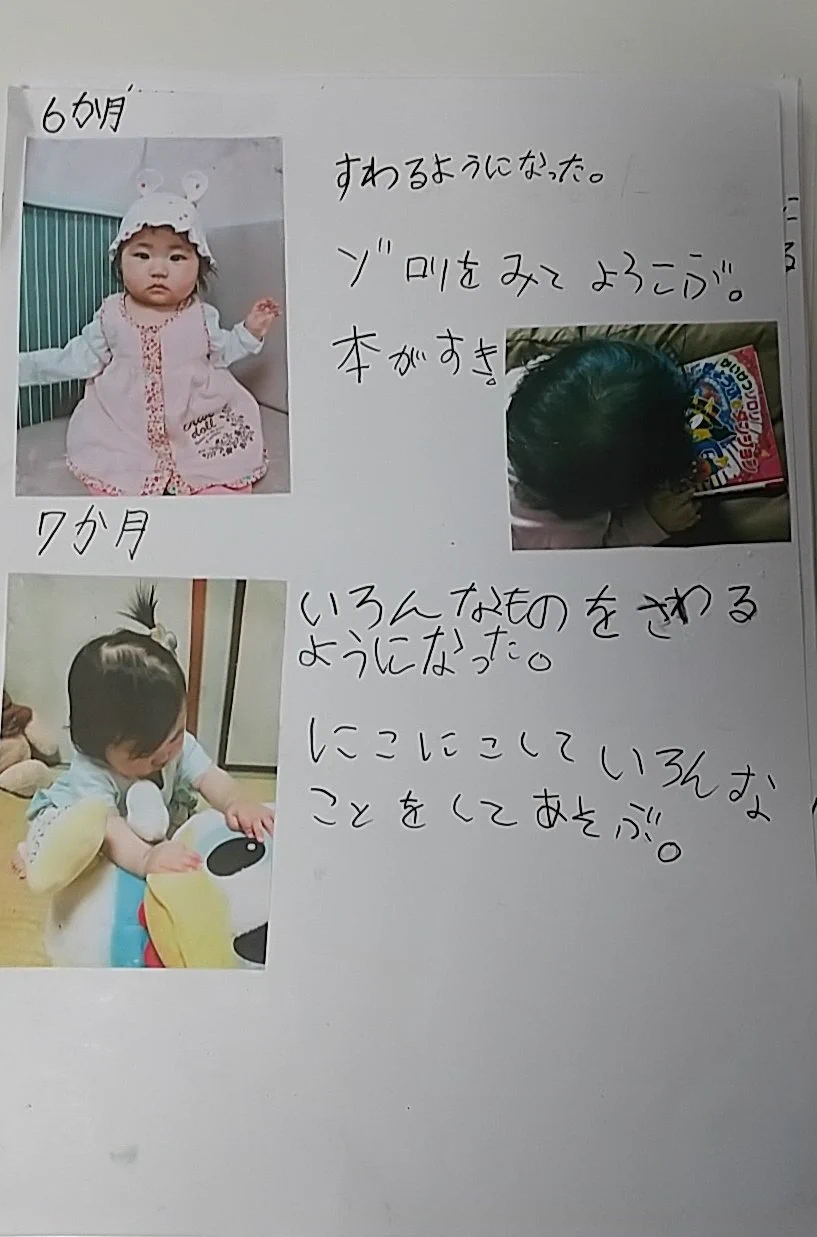 6か月
すわるようになった。
ゾロリをみてよろこぶ。
本がすき。
7か月
いろんなものをさわる
ようになった。
にこにこしていろんな
ことをしてあそぶ。